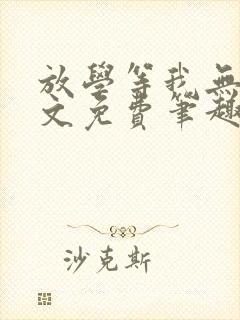 放學等我無
文免費筆趣
沙克斯